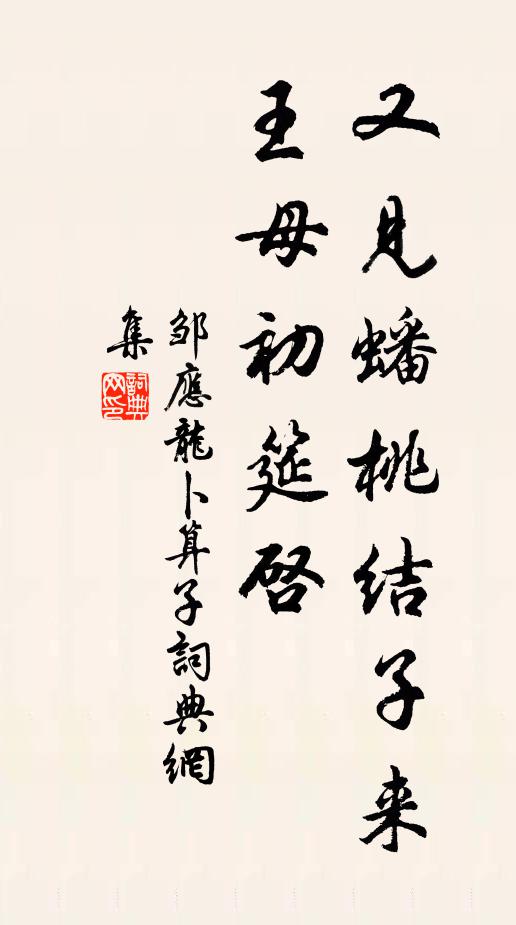 又見蟠桃结子来
王母初筵啓
邹應龍卜算子詞典網
集
詞典网印